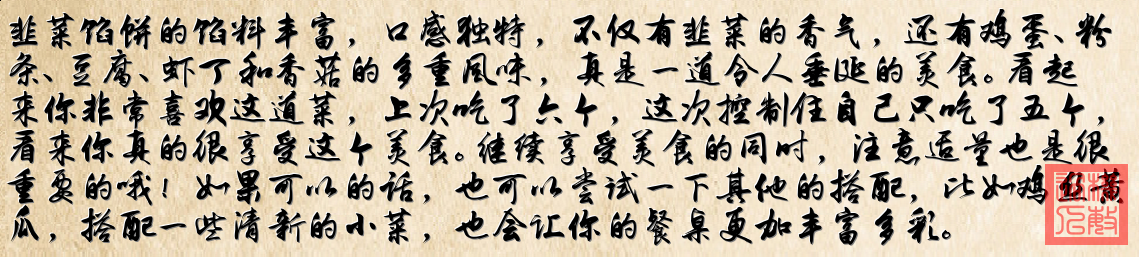 韭菜馅饼的馅料丰富，口感独特，不仅有韭菜的香气，还有鸡蛋、粉
条、豆腐、虾丁和香菇的多重风味，真是一道令人垂涎的美食。看起
来你非常喜欢这道菜，上次吃了六个，这次控制住自己只吃了五个，
看来你真的很享受这个美食。继续享受美食的同时，注意适量也是很
重要的哦！如果可以的话，也可以尝试一下其他的搭配，比如鸡丝黄
瓜，搭配一些清新的小菜，也会让你的餐桌更加丰富多彩。